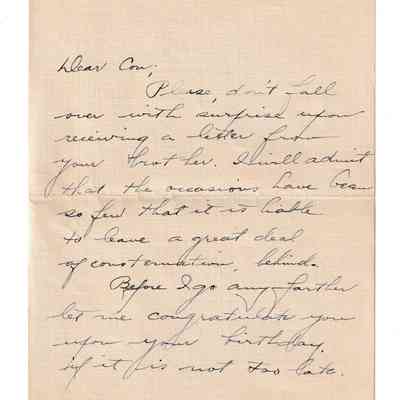 Dear Con;
Please, don't fall
over with surprise upon
receiving a letter from
your brother. I will admit
that the occasions have been
so few that it is liable
to leave a great deal
of consternation, behind.
Before I go any farther
let me congratulate you
upon your birthday,
if it is not too late.